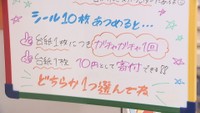 シール10枚あつめると…
台紙1枚につきガチャガチャ1回
台紙1枚 10円として寄付できる
どちらか1つ選んでね